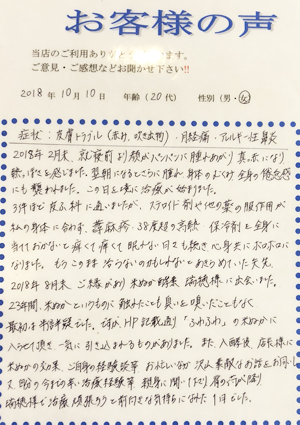 お客様の声
当店のご利用ありがとうございます。
ご意見・ご感想などお聞かせ下さい!!
2018年 10月 10日 年齢(20代) 性別(男・女)
症状:皮膚トラブル(赤み、吹き出物)・月経痛・アレルギー性鼻炎
2018年2月末、就寝前お顔がパンパンに腫れあがり真っ赤になり
熱っぽさを感じました。翌朝になるとさらに腫れ 身体のむくみ 全身の倦怠感
にも襲われました。この日を境に治療が始まりました。
3件ほど皮ふ科に通いましたが、ステロイド剤や他の薬の服作用が
私の身体に合わず、蕁麻疹・38度超の高熱・保冷剤を全身に
当てておかないと痒くて痛くて眠れない日々も続き心身共にボロボロに
なりました。もうこのまま治らないのかもしれないとあきらめていた矢先、
2018年8月末 ご縁があり米ぬか酵素 瑞穂様に出会いました。
23年間、米ぬかというものに触れたことも臭いを嗅いだこともなく
最初は不信半疑でした。ですが、HP記載通り「ふわふわ」の米ぬかに
入らせて頂き一気に引き込まれるものがありました。また、入酵後、店長様に
米ぬかの効果、ご自身の経験談等 お忙しい中 沢山素敵なお話をお伺いし
又、私の今までの系・治療経験等 親身に聞いて下さり肩の荷が降り
瑞穂様で治療頑張ろうと前付きな気持ちになれた1日でした。